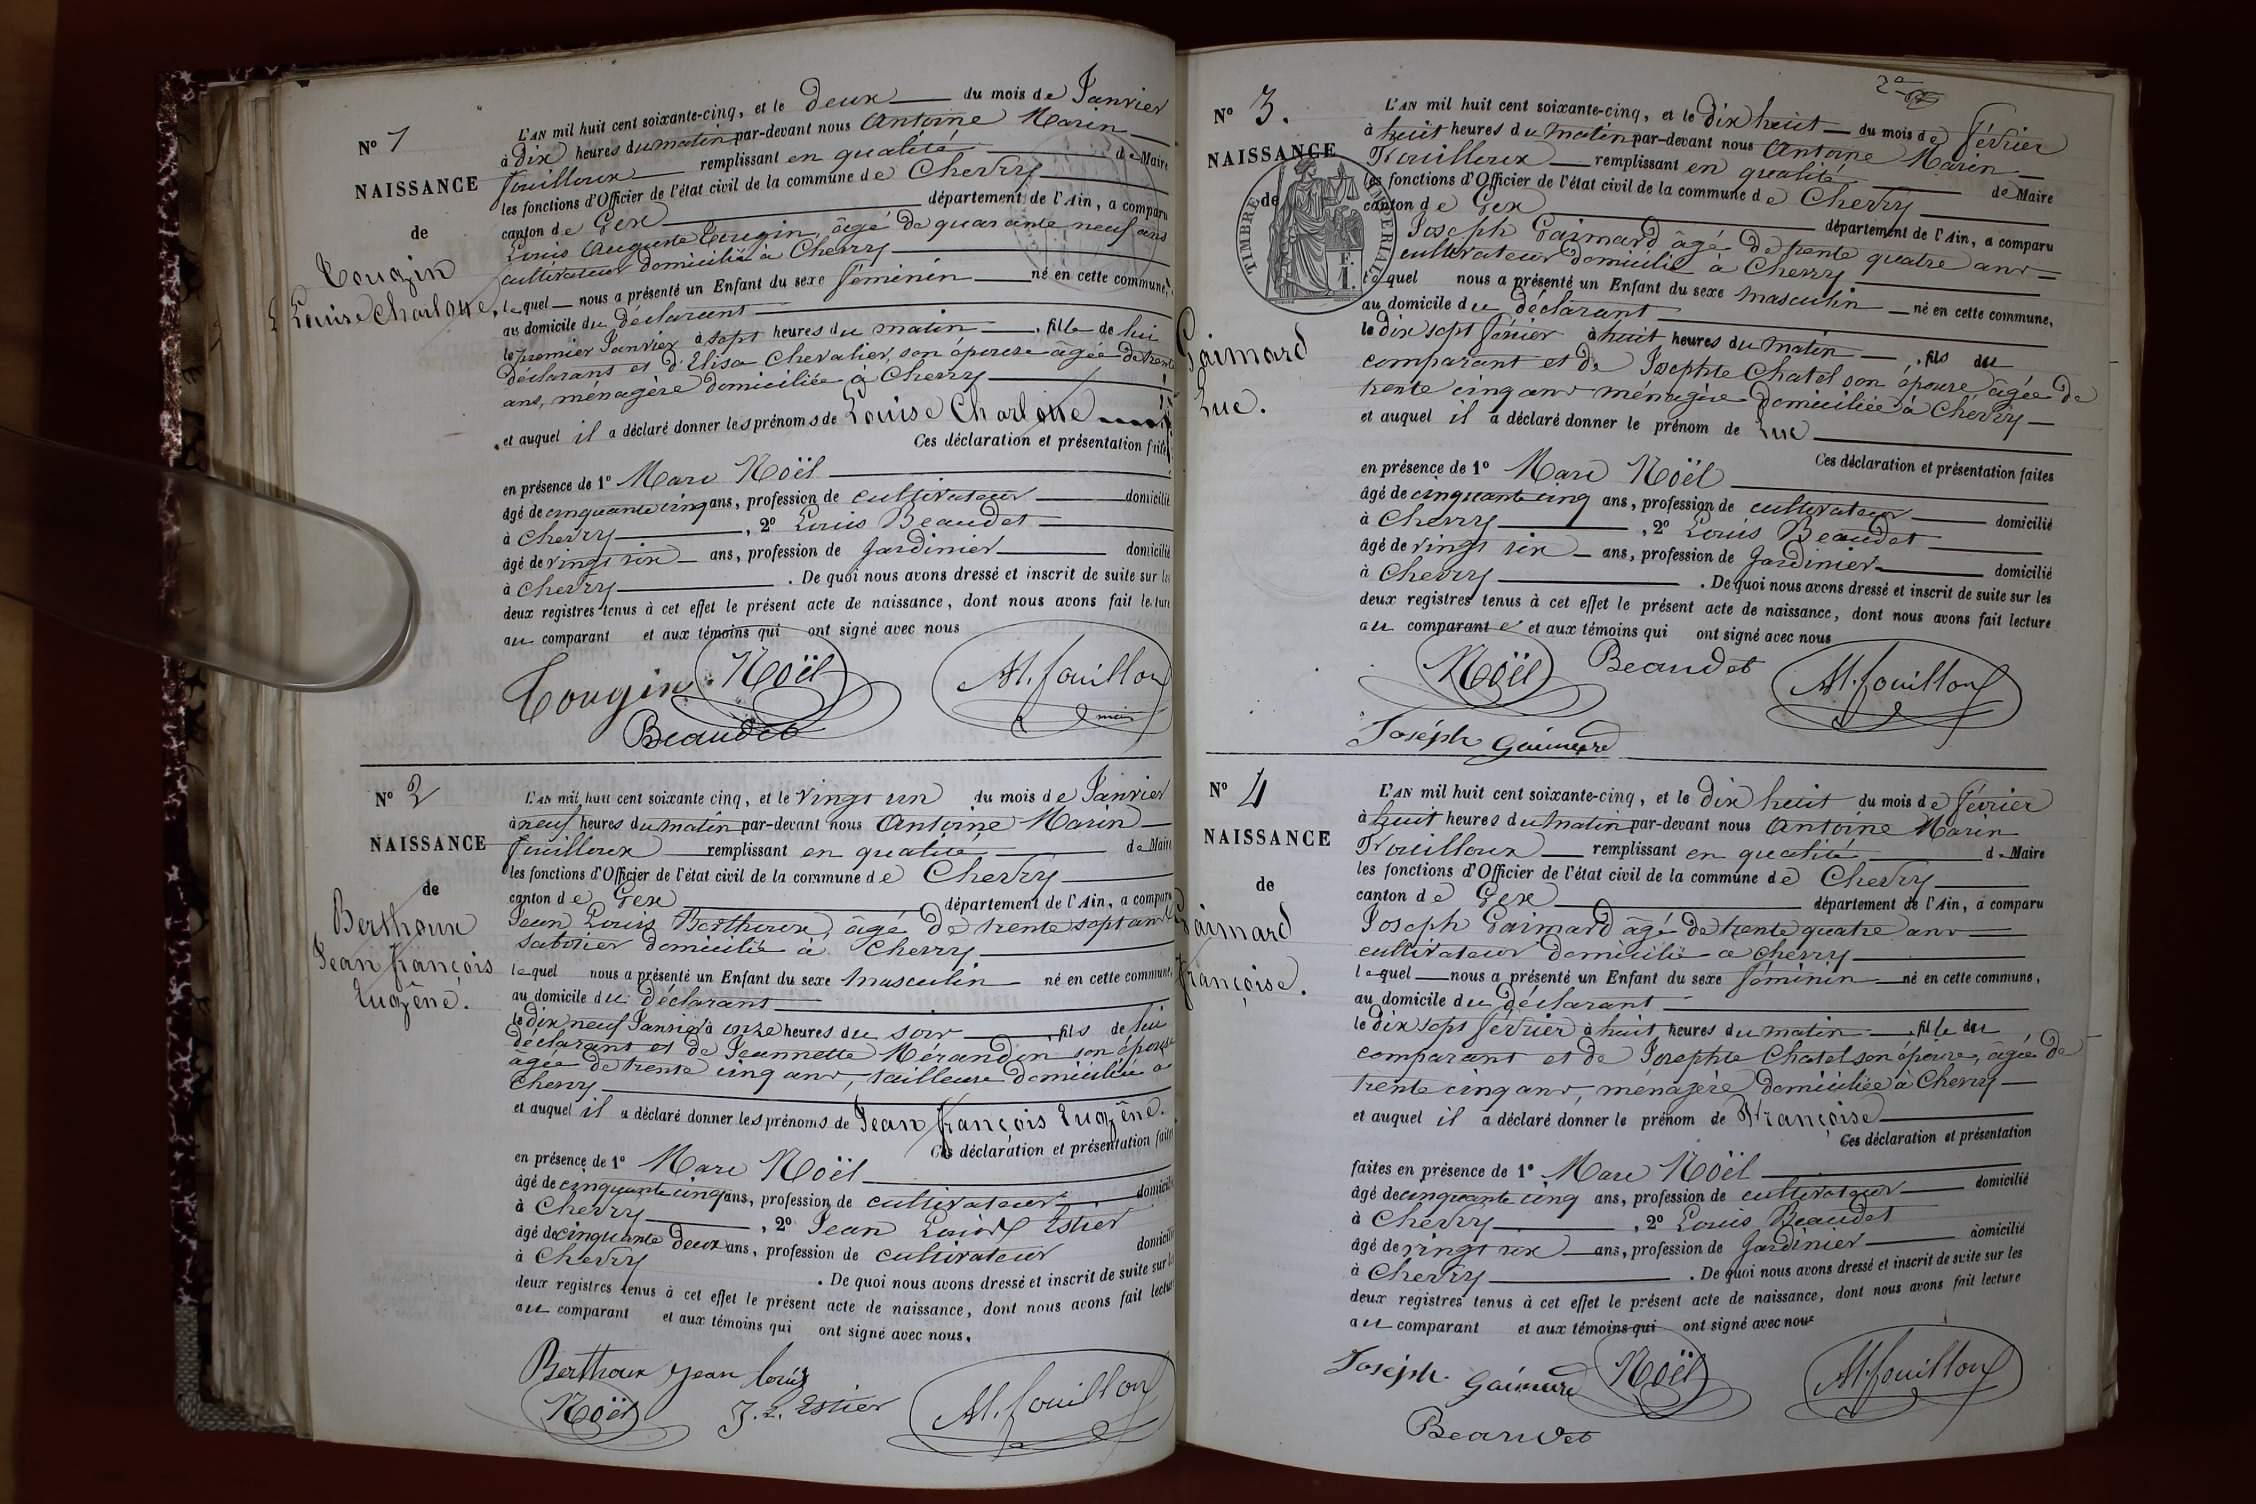 N° 1
NAISSANCE
de
Tougin
Louise Charlotte.
L'AN mil huit cent soixante-cinq, et le deux du mois de Janvier
à dix heures du matin par-devant nous Antoine Marin
Fouilloux remplissant en qualité de Maire
les fonctions d'Officier de l'état civil de la commune de Chevry
canton de Gex département de l'Ain, a comparu
Louis Auguste Tougin, âgé de quarante neuf ans
cultivateur domicilié à Chevry
lequel nous a présenté un Enfant du sexe féminin né en cette commune,
au domicile du déclarant
le premier Janvier à sept heures du matin, fille de lui
déclarant et d'Elisa Chevalier, son épouse âgée de trente
ans, ménagère domiciliée à Chevry
et auquel il a déclaré donner les prénoms de Louise Charlotte
Ces déclaration et présentation faites
en présence de 1° Marc Noël
âgé de cinquante cinq ans, profession de cultivateur domicilié
à Chevry, 2° Louis Beaudet
âgé de vingt six ans, profession de Jardinier domicilié
à Chevry. De quoi nous avons dressé et inscrit de suite sur les
deux registres tenus à cet effet le présent acte de naissance, dont nous avons fait lecture
au comparant et aux témoins qui ont signé avec nous
Tougin Noël M. fouilloux
Beaudet
N° 2
NAISSANCE
de
Berthoux
Jean François
Eugène.
L'AN mil huit cent soixante cinq, et le vingt un du mois de Janvier
à neuf heures du matin par-devant nous Antoine Marin
Fouilloux remplissant en qualité de Maire
les fonctions d'Officier de l'état civil de la commune de Chevry
canton de Gex département de l'Ain, a comparu
Jean Louis Berthoux, âgé de trente sept ans
sabotier domicilié à Chevry
lequel nous a présenté un Enfant du sexe masculin né en cette commune,
au domicile du déclarant
le dix neuf Janvier à onze heures du soir, fils de lui
déclarant et de Jeannette Mérandon son épouse
âgée de trente cinq ans, tailleuse domiciliée à
Chevry
et auquel il a déclaré donner les prénoms de Jean François Eugène.
Ces déclaration et présentation faites
en présence de 1° Marc Noël
âgé de cinquante cinq ans, profession de cultivateur domicilié
à Chevry, 2° Jean Louis Estier
âgé de cinquante deux ans, profession de cultivateur domicilié
à Chevry. De quoi nous avons dressé et inscrit de suite sur les
deux registres tenus à cet effet le présent acte de naissance, dont nous avons fait lecture
au comparant et aux témoins qui ont signé avec nous.
Berthoux Jean louis
Noël J. L. Estier M. fouilloux
N° 3.
NAISSANCE
de
TIMBRE IMPERIAL
F. 1.
Gaimard
Luc.
L'AN mil huit cent soixante-cinq, et le dix huit du mois de Février
à huit heures du matin par-devant nous Antoine Marin
Frouilloux remplissant en qualité de Maire
les fonctions d'Officier de l'état civil de la commune de Chevry
canton de Gex département de l'Ain, a comparu
Joseph Gaimard âgé de trente quatre ans
cultivateur domicilié à Chevry
lequel nous a présenté un Enfant du sexe masculin né en cette commune,
au domicile du déclarant
le dix sept Février à huit heures du matin, fils du
comparant et de Josephte Chatel son épouse, âgée de
trente cinq ans ménagère domiciliée à Chevry
et auquel il a déclaré donner le prénom de Luc
Ces déclaration et présentation faites
en présence de 1° Marc Noël
âgé de cinquante cinq ans, profession de cultivateur domicilié
à Chevry, 2° Louis Beaudet
âgé de vingt six ans, profession de Jardinier domicilié
à Chevry. De quoi nous avons dressé et inscrit de suite sur les
deux registres tenus à cet effet le présent acte de naissance, dont nous avons fait lecture
au comparant et aux témoins qui ont signé avec nous
Noël Beaudet M. fouilloux
Joséph Gaimard
N° 4
NAISSANCE
de
Gaimard
Françoise.
L'AN mil huit cent soixante-cinq, et le dix huit du mois de Février
à huit heures du matin par-devant nous Antoine Marin
Frouilloux remplissant en qualité de Maire
les fonctions d'Officier de l'état civil de la commune de Chevry
canton de Gex département de l'Ain, a comparu
Joseph Gaimard âgé de trente quatre ans
cultivateur domicilié à Chevry
lequel nous a présenté un Enfant du sexe féminin né en cette commune,
au domicile du déclarant
le dix sept Février à huit heures du matin, fille du
comparant et de Josephte Chatel son épouse, âgée de
trente cinq ans, ménagère domiciliée à Chevry
et auquel il a déclaré donner le prénom de Françoise
Ces déclaration et présentation
faites en présence de 1° Marc Noël
âgé de cinquante cinq ans, profession de cultivateur domicilié
à Chevry, 2° Louis Beaudet
âgé de vingt six ans, profession de Jardinier domicilié
à Chevry. De quoi nous avons dressé et inscrit de suite sur les
deux registres tenus à cet effet le présent acte de naissance, dont nous avons fait lecture
au comparant et aux témoins qui ont signé avec nous
Joséph Gaimard Noël M. fouilloux
Beaudet